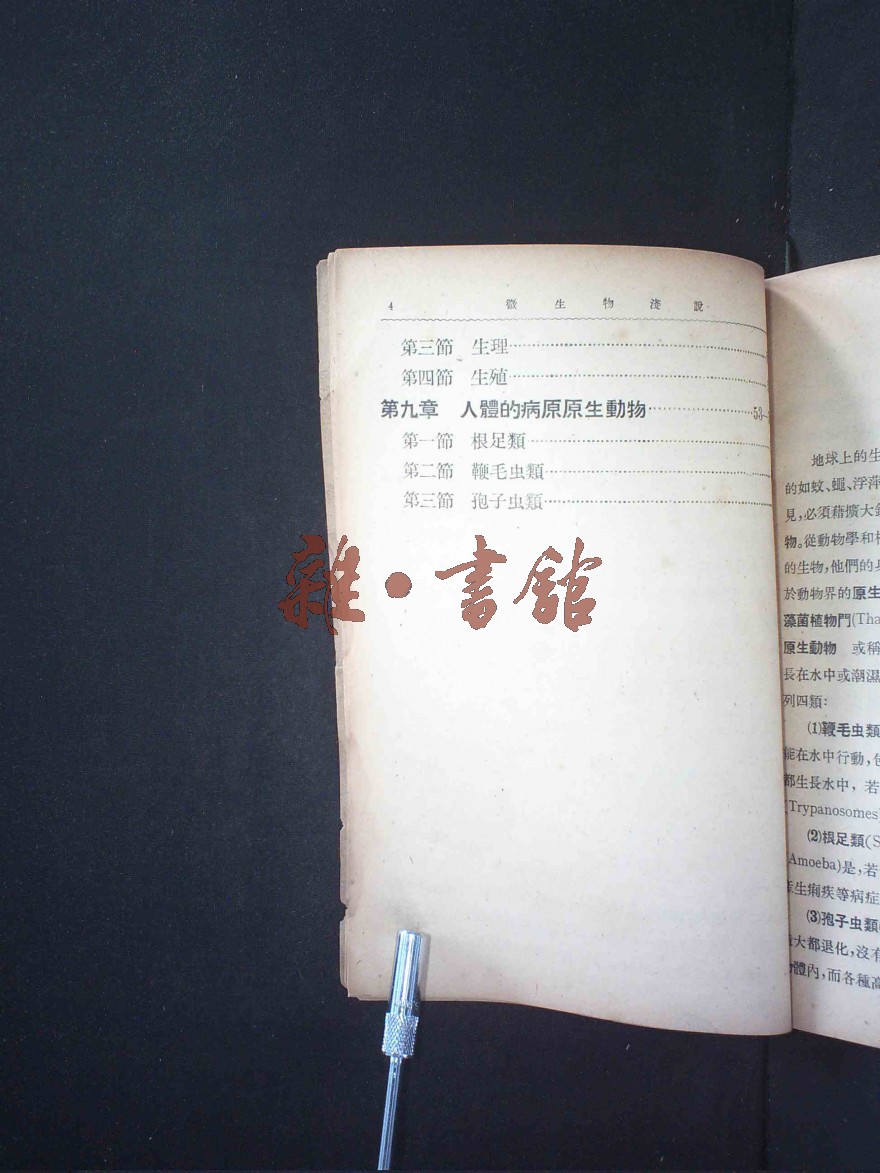 4 微生物淺說
第三節 生理
第四節 生殖
第九章 人體的病原原生動物 53
第一節 根足類
第二節 鞭毛虫類
第三節 孢子虫類
雜·書舘
地球上的生
的如蚊、蠅、浮萍
見,必須藉擴大
物。從動物學和
的生物,他們的
於動物界的原生
藻菌植物門(Tha
原生動物 或稱
長在水中或潮濕
列四類:
(1)鞭毛虫類
能在水中行動,
都生長水中,若
(Trypanosomes)
(2)根足類(S
Amoeba)是,若
生痢疾等病症
(3)孢子虫類
大都退化,沒有
體內,而各種高